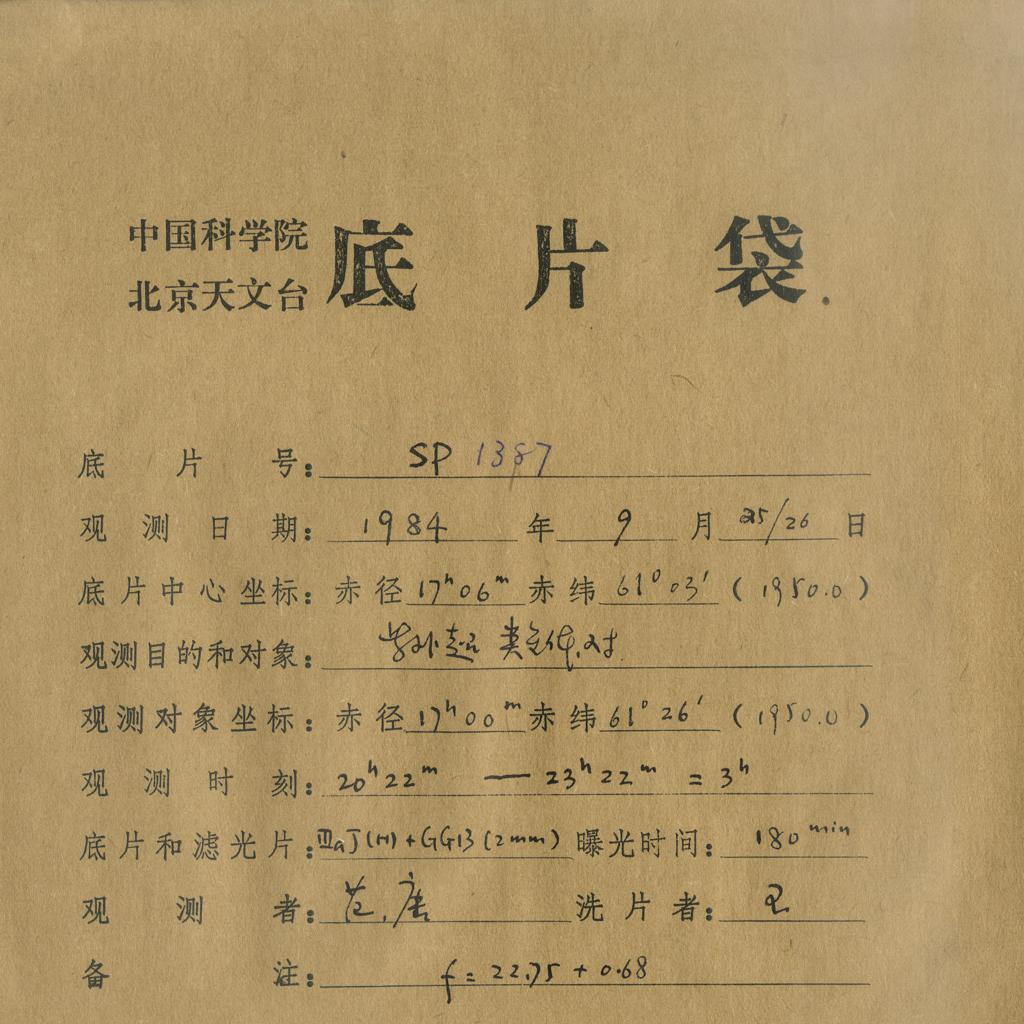 中国科学院
北京天文台
底片袋
底片号: SP 1387
观测日期: 1984 年 9 月 25/26 日
底片中心坐标: 赤径 17ʰ06ᵐ 赤纬 61°03′ (1950.0)
观测目的和对象: 紫外超 类星体 对
观测对象坐标: 赤径 17ʰ00ᵐ 赤纬 61°26′ (1950.0)
观测时刻: 20ʰ22ᵐ — 23ʰ22ᵐ = 3ʰ
底片和滤光片: ⅢaJ(H)+GG13(2mm) 曝光时间: 180ᵐⁱⁿ
观测者: 唐 洗片者:
备注: f = 22.75 + 0.68